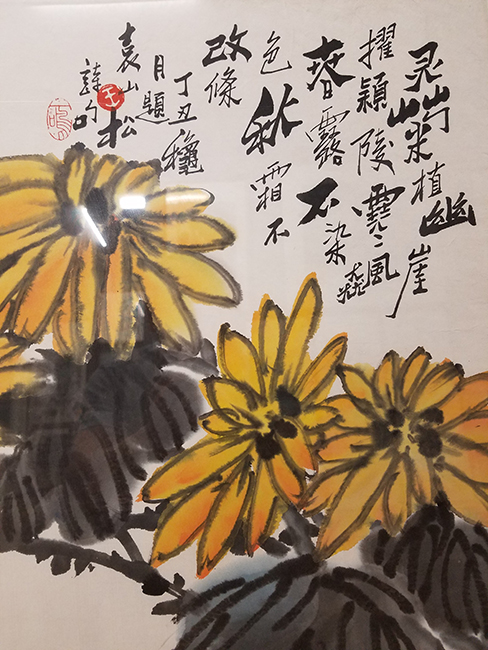 灵菊植幽崖
擢穎陵寒飆
春露不染
色秋霜不
改條
丁丑穐
月題
袁山松
詩句